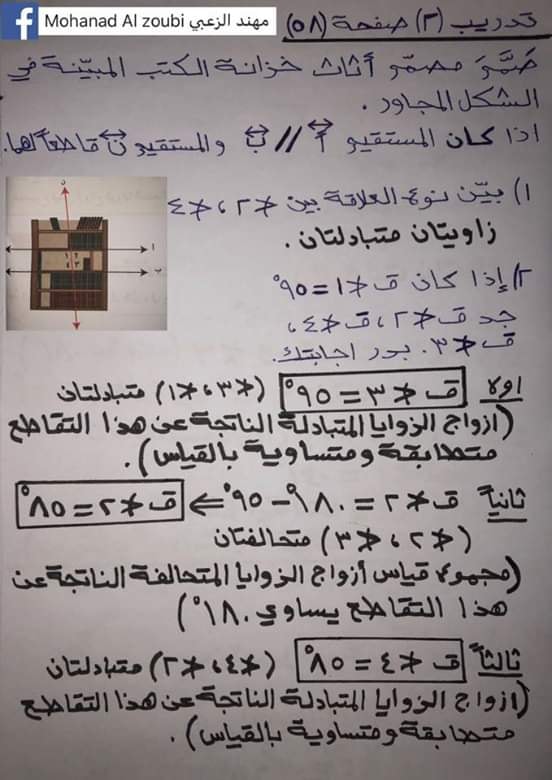 Mohanad Al zoubi مهند الزعبي
تدريب (٢) صفحة (٥٨)
صَمَّمَ مصمّم أثاث خزانة الكتب المبيّنة في
الشكل المجاور .
اذا كان المستقيم أ // ب والمستقيم ن قاطعاً لهما.
١) بيّن نوع العلاقة بين ∢٢ ، ∢٤
زاويتان متبادلتان .
٢) إذا كان ق∢١ = ٩٥°
جد ق∢٢ ، ق∢٤ ،
ق∢٣. برر اجابتك.
اولا ق∢٣ = ٩٥° (∢٣ ، ∢١) متبادلتان
(ازواج الزوايا المتبادلة الناتجة عن هذا التقاطع
متطابقة ومتساوية بالقياس).
ثانياً ق∢٢ = ١٨٠° - ٩٥° ⇐ ق∢٢ = ٨٥°
(∢٢ ، ∢٣) متحالفتان
(مجموع قياس أزواج الزوايا المتحالفة الناتجة عن
هذا التقاطع يساوي ١٨٠°)
ثالثاً ق∢٤ = ٨٥° (∢٤ ، ∢٢) متبادلتان
(ازواج الزوايا المتبادلة الناتجة عن هذا التقاطع
متطابقة ومتساوية بالقياس) .